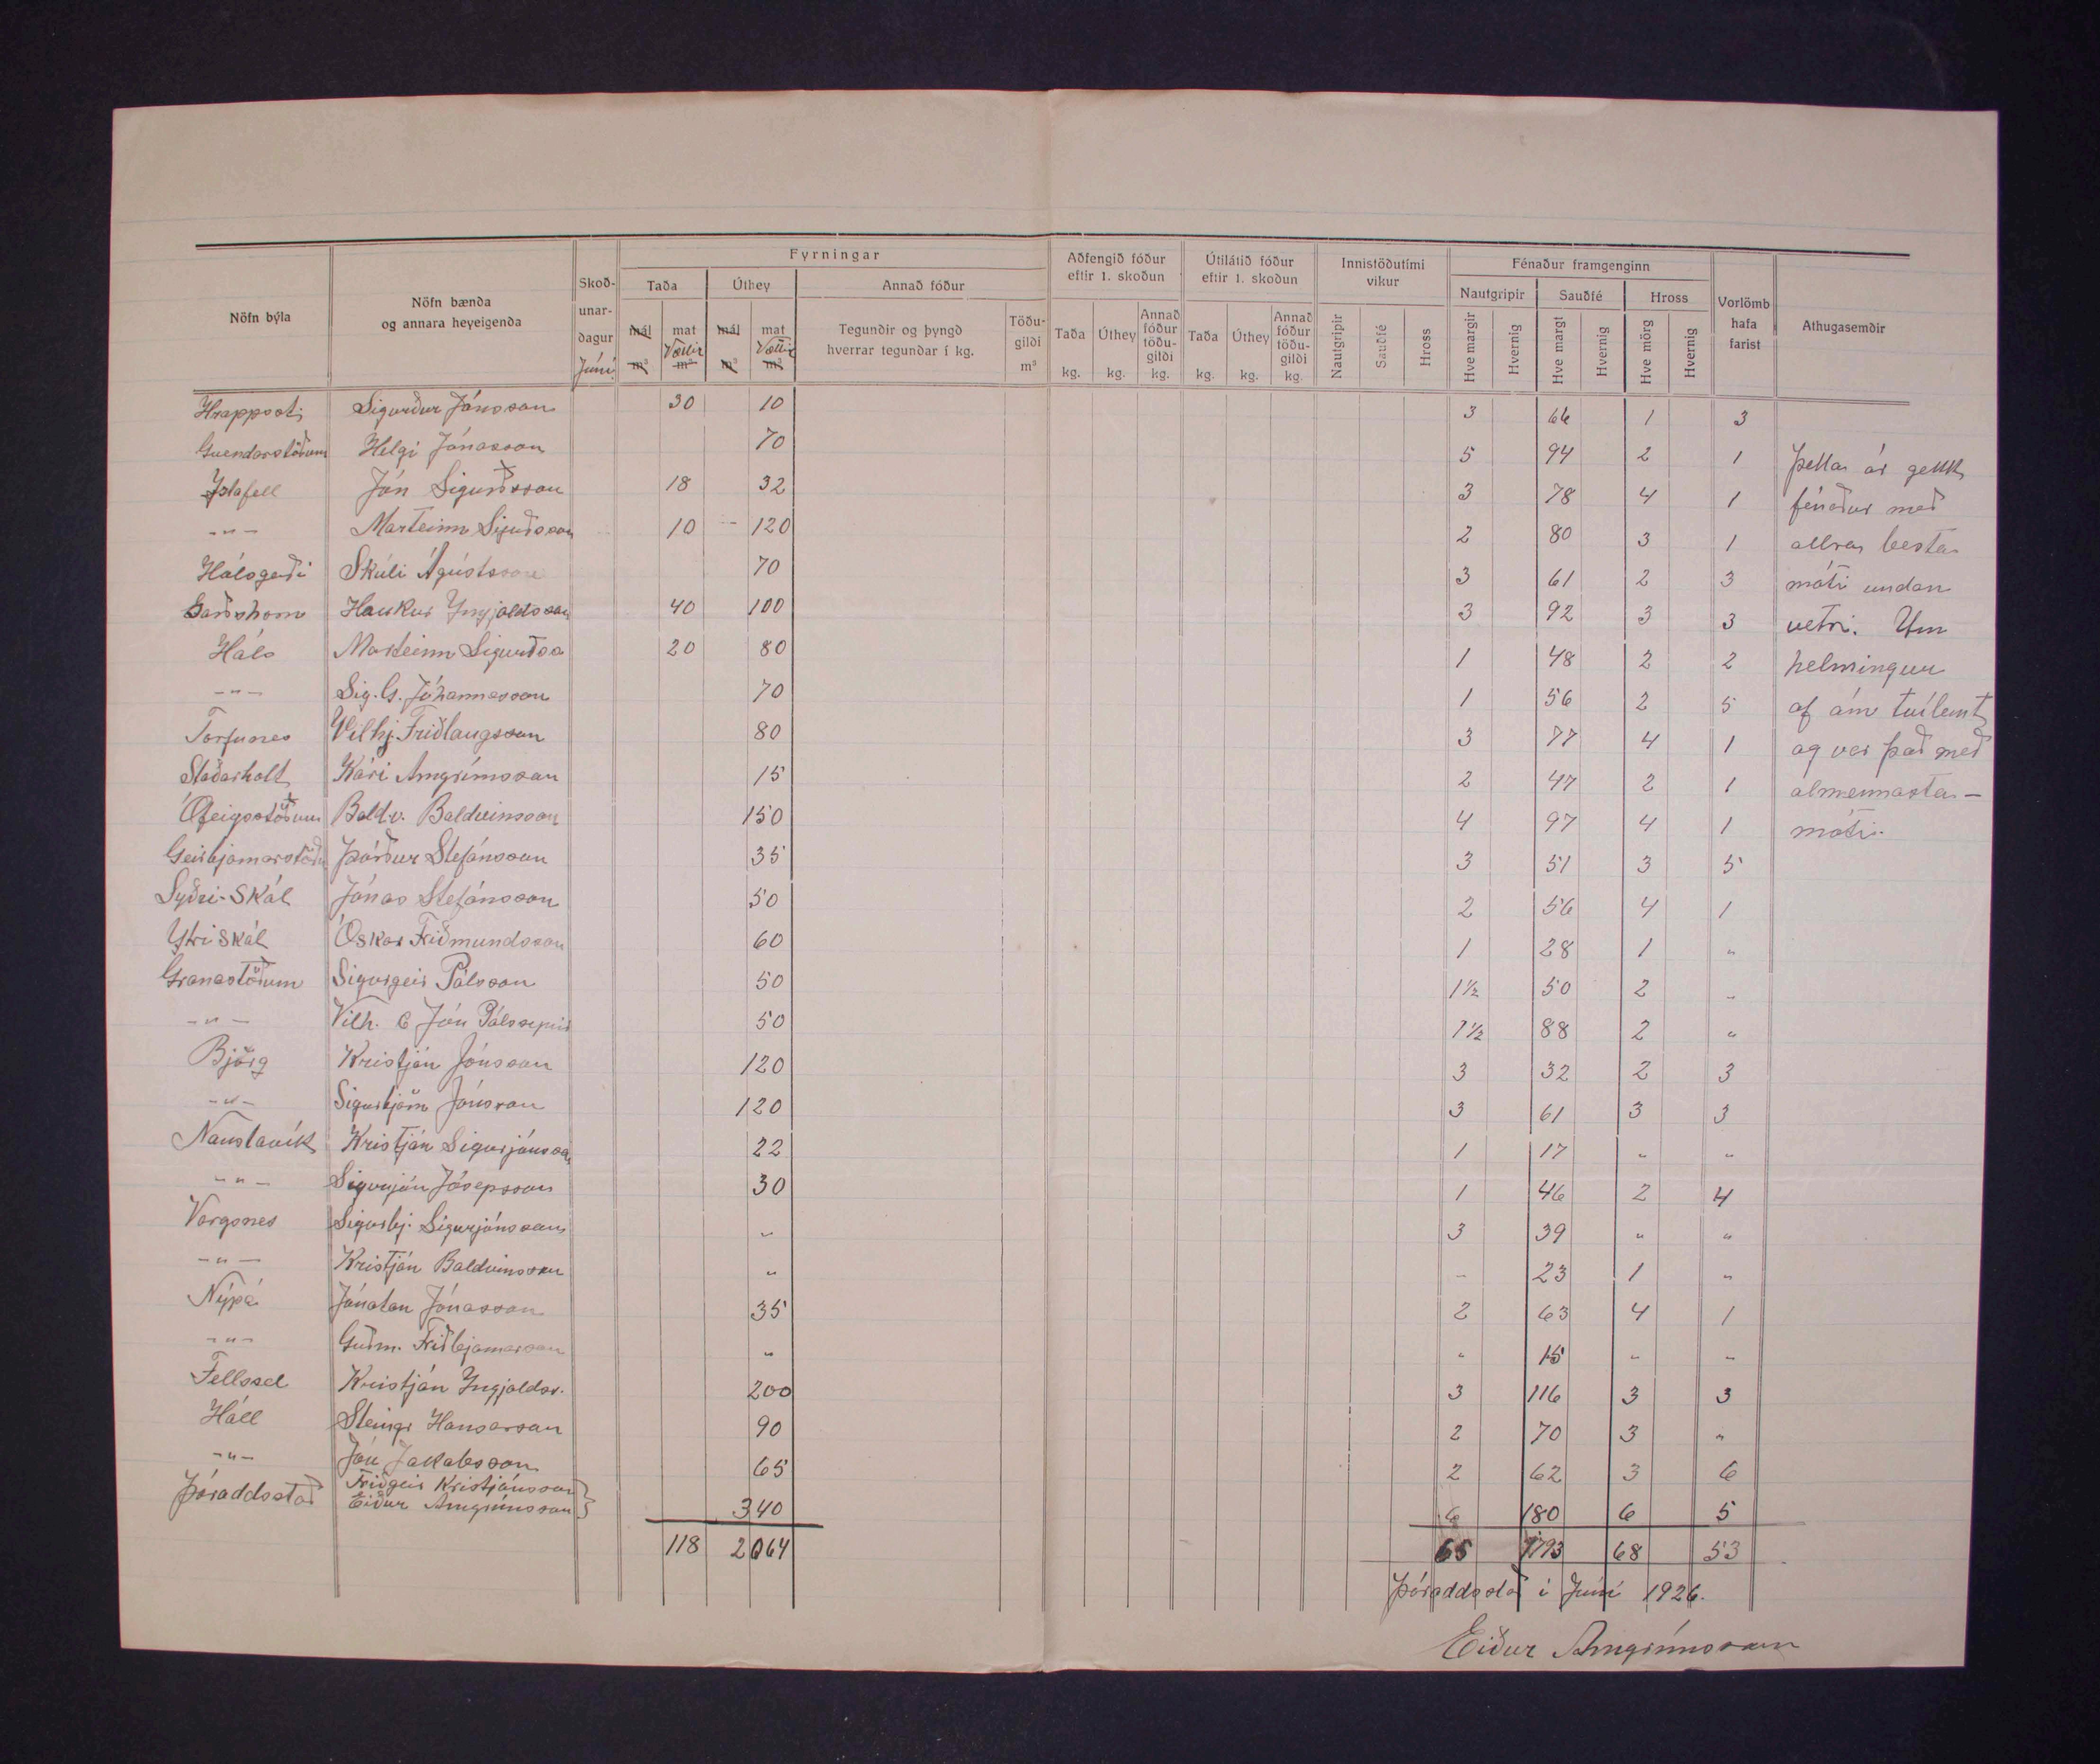 Fyrningar
Aðfengið fóður eftir 1. skoðun
Útilátið fóður eftir 1. skoðun
Innistöðutími vikur
Fénaður framgenginn
Nöfn býla
Nöfn bænda og annara heyeigenda
Skoð-unar-dagur Júní
Taða
Úthey
Annað fóður
Nautgripir
Sauðfé
Hross
Vorlömb hafa farist
Athugasemdir
mál m³
mat Vættir m³
mál m³
mat Vættir m³
Tegundir og þyngd hverrar tegundar í kg.
Töðu-gildi m³
Taða kg.
Úthey kg.
Annað fóður töðu-gildi kg.
Taða kg.
Úthey kg.
Annað fóður töðu-gildi kg.
Nautgripir
Sauðfé
Hross
Hve margir
Hvernig
Hve margt
Hvernig
Hve mörg
Hvernig
Hrappsst. Sigurður Jónsson 30 10 3 66 1 3
Gvendarstöðum Helgi Jónasson 70 5 94 2 1 Þetta ár gekk
Ystafell Jón Sigurðsson 18 32 3 78 4 1 fénaður með
-"- Marteinn Sigurðsson 10 120 2 80 3 1 allra besta
Hálsgerði Skúli Ágústsson 70 3 61 2 3 móti undan
Garðshorn Haukur Yngjaldsson 40 100 3 92 3 3 vetri. Um
Háls Marteinn Sigurðss 20 80 1 48 2 2 helmingur
-"- Sig. G. Jóhannesson 70 1 56 2 5 af ám tvílemt
Torfunes Vilhj. Friðlaugsson 80 3 77 4 1 og var það með
Staðarholt Kári Arngrímsson 15 2 47 2 1 almennasta-
Ófeigsstöðum Baldv. Baldvinsson 150 4 97 4 1 móti.
Geirbjarnarstöðu Þórður Stefánsson 35 3 51 3 5
Syðri-Skál Jónas Stefánsson 50 2 56 4 1
Ytri Skál Óskar Friðmundsson 60 1 28 1 "
Granastöðum Sigurgeir Pálsson 50 1½ 50 2 "
-"- Vilh. & Jón Pálssynir 50 1½ 88 2 "
Björg Kristján Jónsson 120 3 32 2 3
-"- Sigurbjörn Jónsson 120 3 61 3 3
Naustavík Kristján Sigurjónsson 22 1 17 " "
-"- Sigurjón Jósepsson 30 1 46 2 4
Vargsnes Sigurbj. Sigurjónsson " 3 39 " "
-"- Kristján Baldvinsson " " 23 1 "
Nýpá Jónatan Jónasson 35 2 63 4 1
-"- Guðm. Friðbjarnarson " " 15 " "
Fellssel Kristján Yngjaldss. 200 3 116 3 3
Háll Steingr Hansarson 90 2 70 3 "
-"- Jón Jakobsson 65 2 62 3 6
Þóroddsstað Friðgeir Kristjánsson
Eiður Arngrímsson } 340 6 180 6 5
118 2064 65 1793 68 53
Þóroddsstað í Júní 1926.
Eiður Arngrímsson